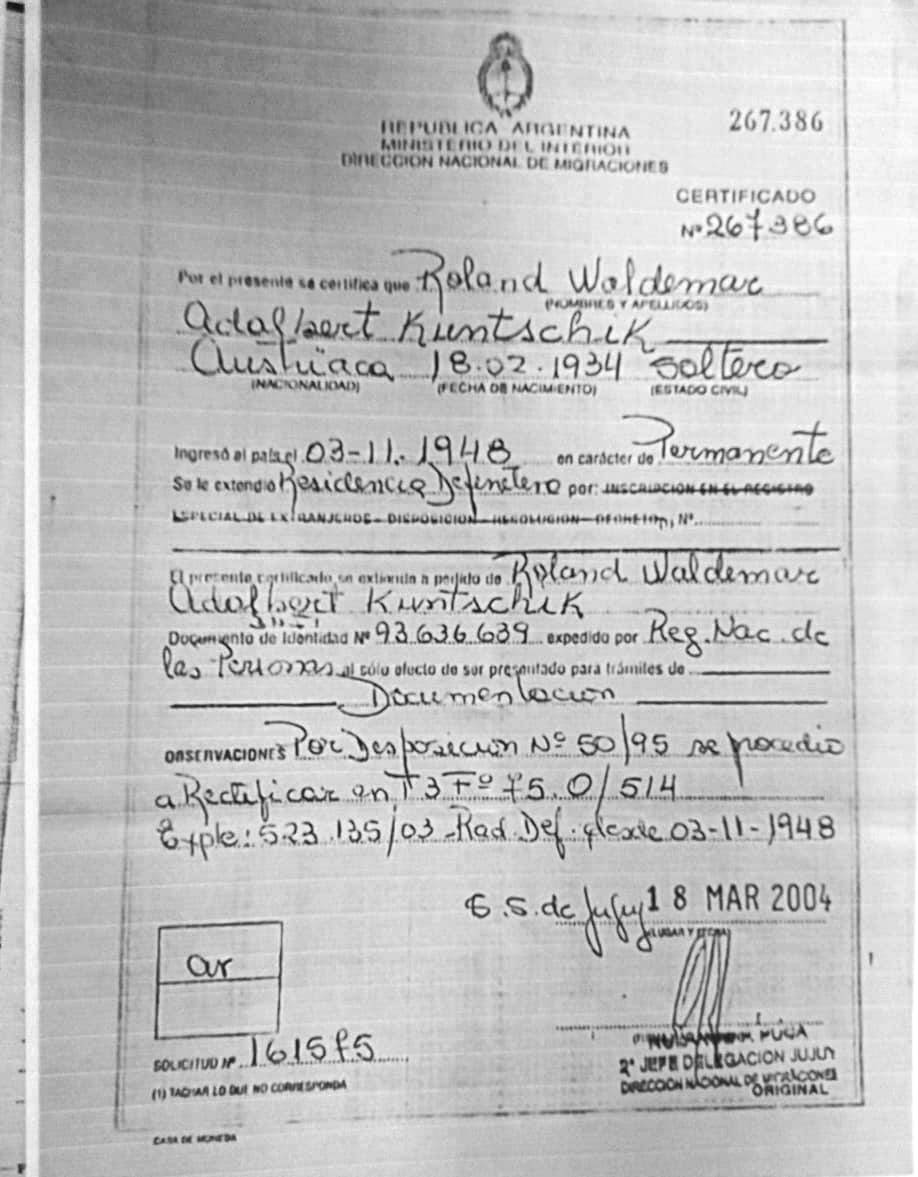 267.386
REPUBLICA ARGENTINA
MINISTERIO DEL INTERIOR
DIRECCION NACIONAL DE MIGRACIONES
CERTIFICADO
Nº 267386
Por el presente se certifica que Roland Waldemar
(NOMBRES Y APELLIDOS)
Adalbert Kuntschik
Austriaca 18.02.1934 Soltero
(NACIONALIDAD) (FECHA DE NACIMIENTO) (ESTADO CIVIL)
Ingresó al país el 03-11-1948 en carácter de Permanente
Se le extendió Residencia Definitiva por: INSCRIPCION EN EL REGISTRO
ESPECIAL DE EXTRANJEROS - DISPOSICION - RESOLUCION - DECRETO(1) Nº
El presente certificado se extiende a pedido de Roland Waldemar
Adalbert Kuntschik
Documento de Identidad Nº 93.636.639 expedido por Reg. Nac. de
las Personas al sólo efecto de ser presentado para trámites de
Documentacion
OBSERVACIONES Por Disposicion Nº 50/95 se procedio
a Rectificar en T 3 Fº 75.0/514
Expte: 523.135/03 Rad. Def. desde 03-11-1948
S.S. de Jujuy 18 MAR 2004
(LUGAR Y FECHA)
ar
SOLICITUD Nº 161575
(1) TACHAR LO QUE NO CORRESPONDA
PUCA
2º JEFE DELEGACION JUJUY
DIRECCION NACIONAL DE MIGRACIONES
ORIGINAL
CASA DE MONEDA